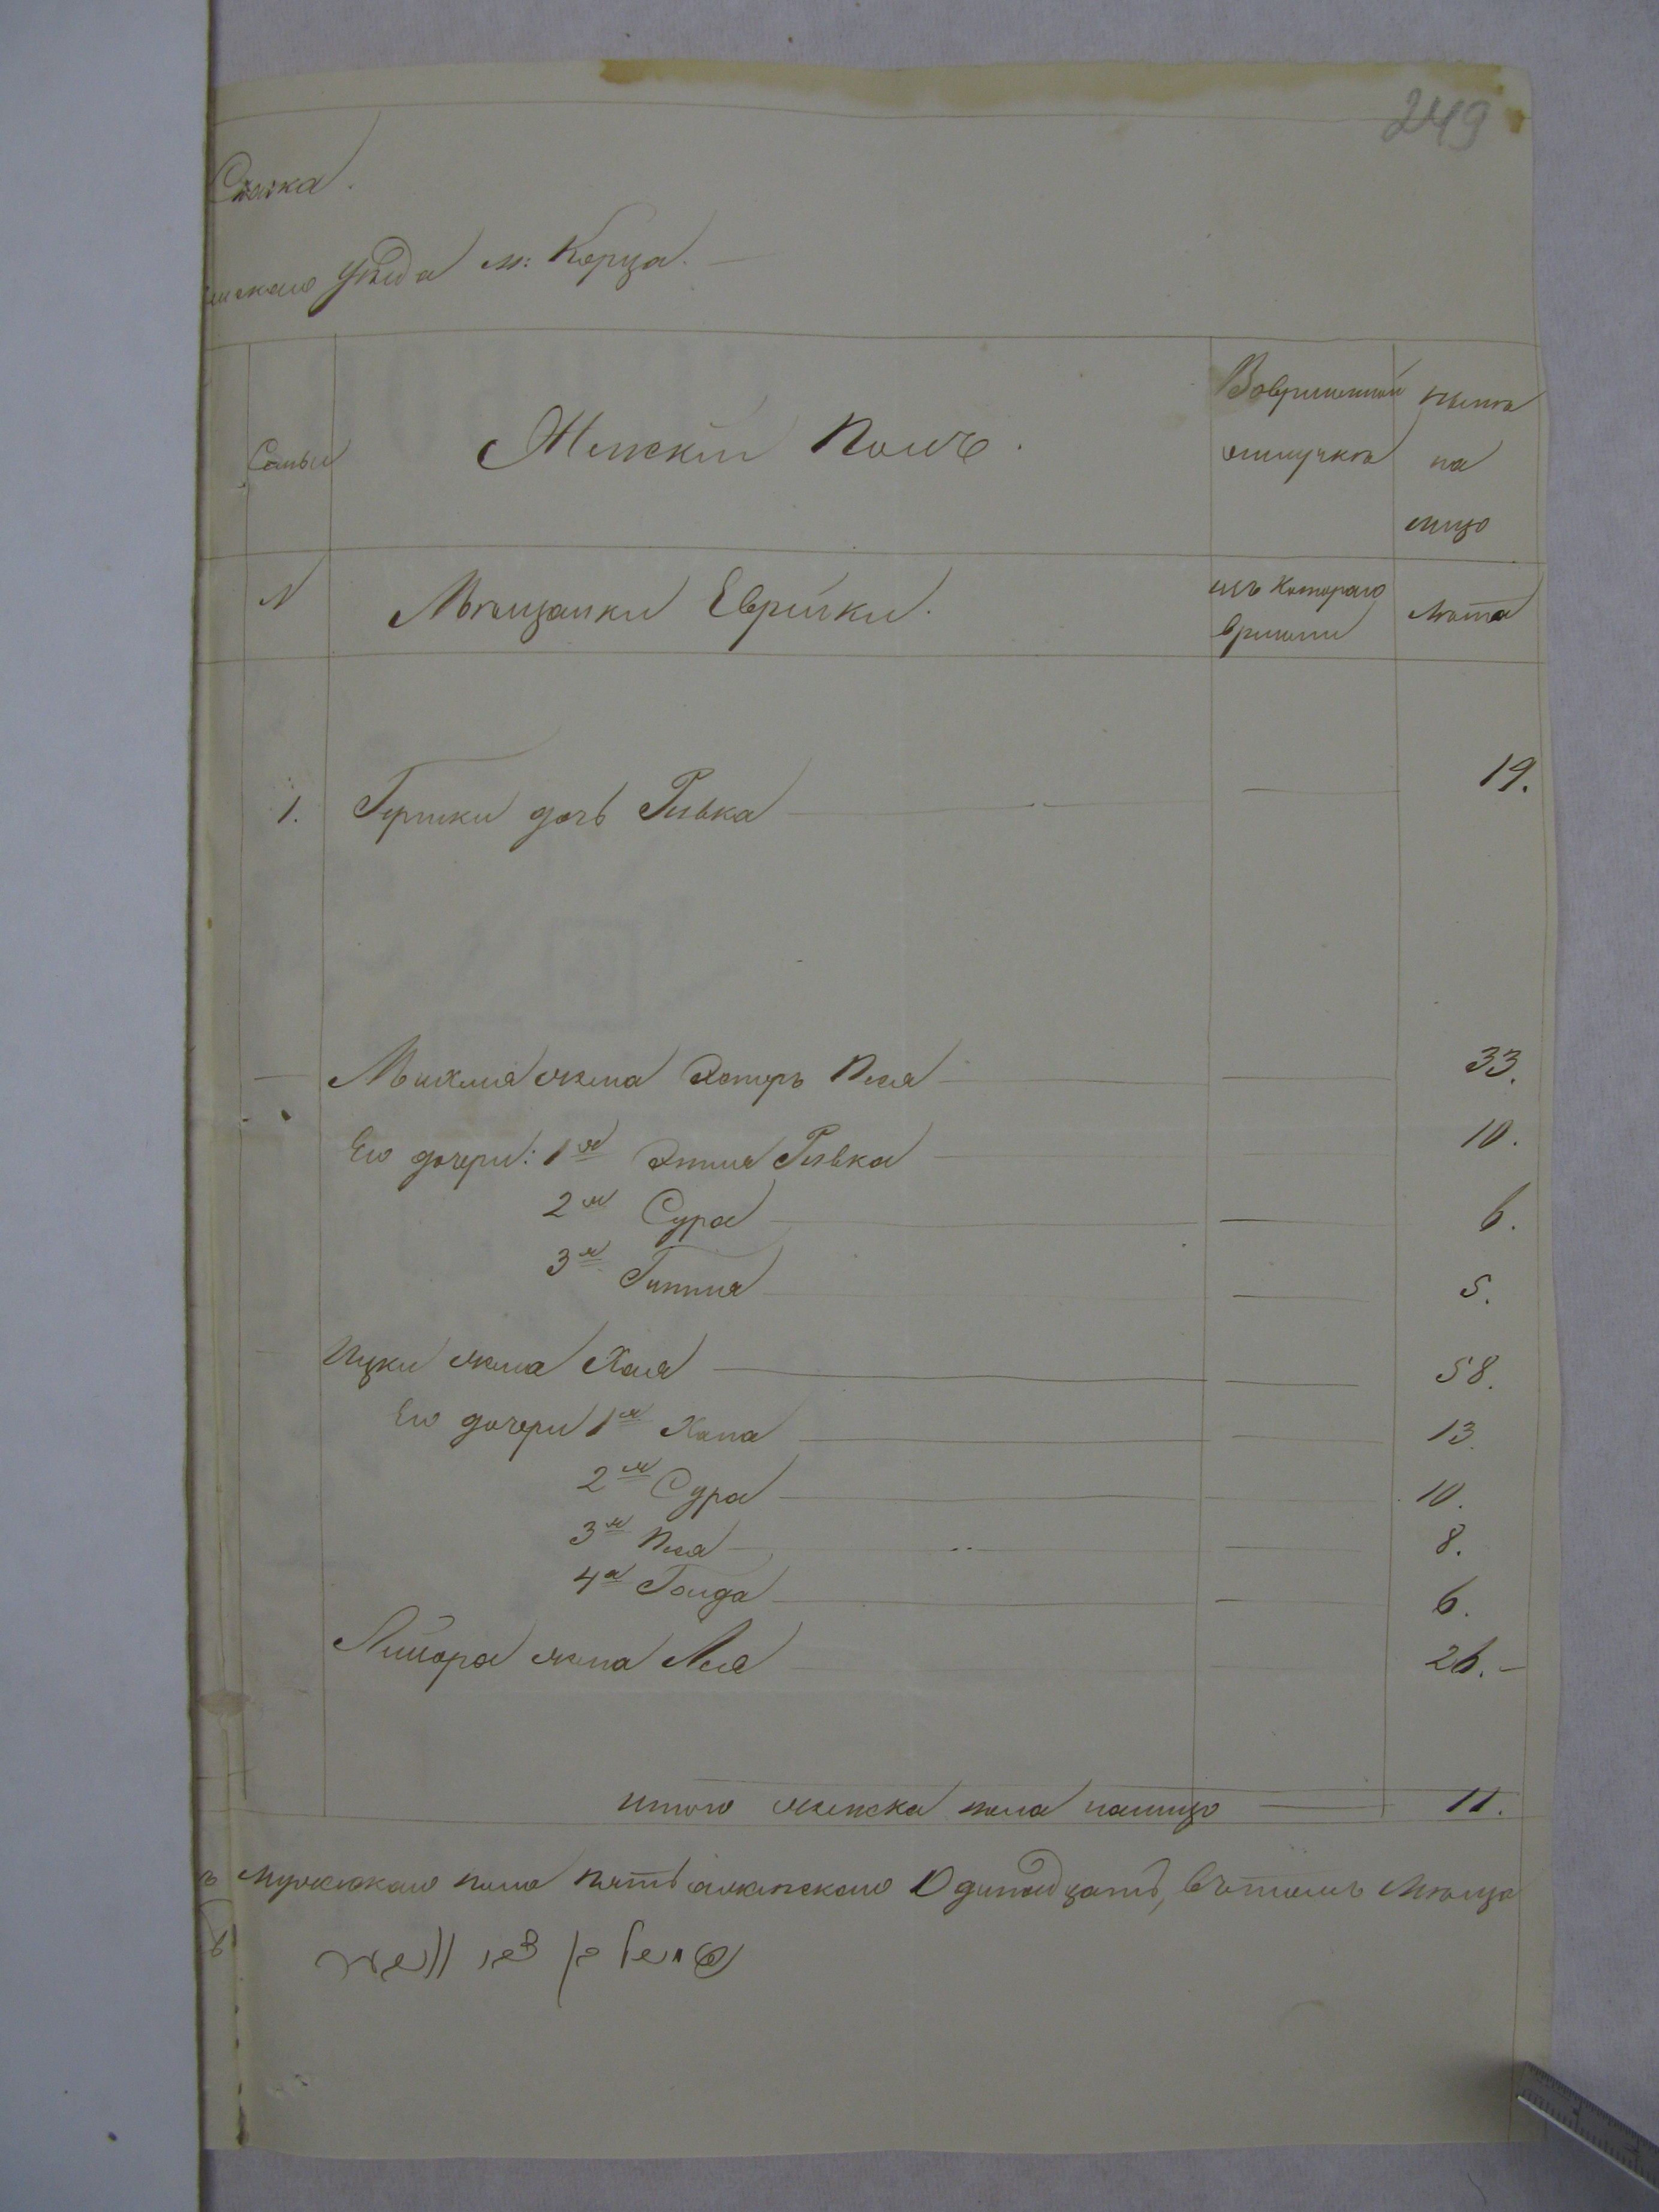 249
Сказка.
нскаго уѣзда м: Корца.
Семьи
Женскій полъ.
Вовременной отлучкѣ
нынѣ на лицо
№
Мѣщанки Еврейки.
съ котораго времени
лѣта
1. Гершки дочь Ривка 19.
Михеля жена Эстеръ Песя 33.
Его дочери: 1я Этля Ривка 10.
2я Сура 6.
3я Гитля 5.
Ицки жена Хая 58.
Его дочери 1я Хана 13.
2я Сура 10.
3я Песя 8.
4я Голда 6.
Лейзора жена Лея 26.
итого женска пола налицо 11.
мужескаго пола пять аженскаго Одинадцать, вътомъ